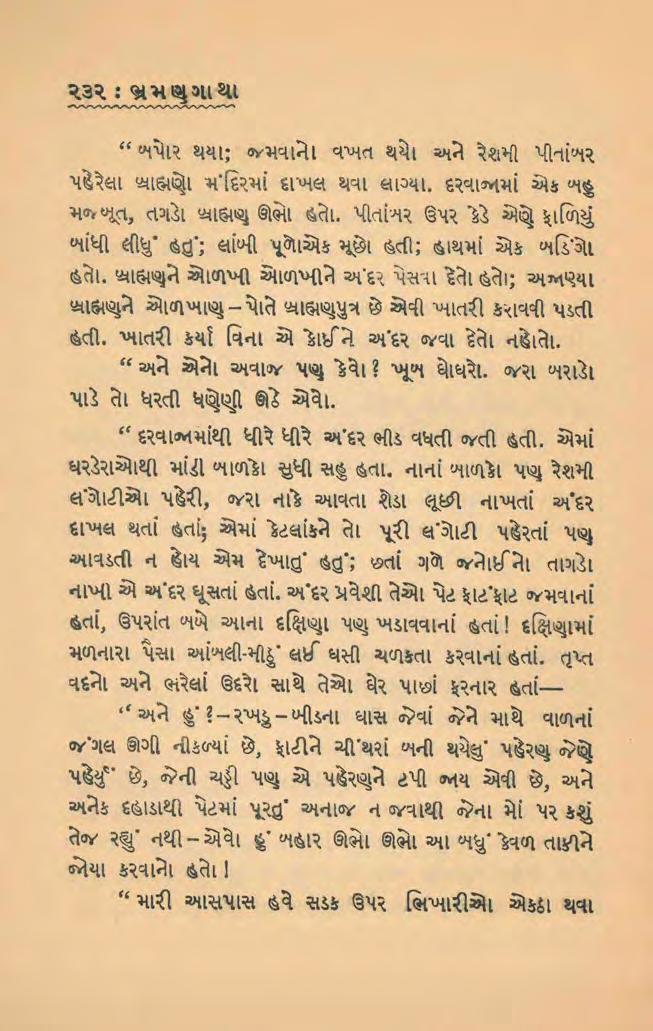 ૨૩૨ : ભ્રમણગાથા
“ બપોર થયા; જમવાનો વખત થયો અને રેશમી પીતાંબર
પહેરેલા બ્રાહ્મણો મંદિરમાં દાખલ થવા લાગ્યા. દરવાજામાં એક બહુ
મજબૂત, તગડો બ્રાહ્મણ ઊભો હતો. પીતાંબર ઉપર કેડે એણે ફાળિયું
બાંધી લીધું હતું; લાંબી પૂળોએક મૂછો હતી; હાથમાં એક બડિંગો
હતો. બ્રાહ્મણને ઓળખી ઓળખીને અંદર પેસવા દેતો હતો; અજાણ્યા
બ્રાહ્મણને ઓળખાણ – પોતે બ્રાહ્મણપુત્ર છે એવી ખાતરી કરાવવી પડતી
હતી. ખાતરી કર્યા વિના એ કોઈને અંદર જવા દેતો નહોતો.
“ અને એનો અવાજ પણ કેવો ? ખૂબ ઘોઘરો. જરા બરાડો
પાડે તો ધરતી ધણેણી ઊઠે એવો.
“ દરવાજામાંથી ધીરે ધીરે અંદર ભીડ વધતી જતી હતી. એમાં
ઘરડેરાઓથી માંડી બાળકો સુધી સહુ હતા. નાનાં બાળકો પણ રેશમી
લંગોટીઓ પહેરી, જરા નાકે આવતા શેડા લૂછી નાખતાં અંદર
દાખલ થતાં હતાં; એમાં કેટલાંકને તો પૂરી લંગોટી પહેરતાં પણ
આવડતી ન હોય એમ દેખાતું હતું; છતાં ગળે જનોઈનો તાગડો
નાખી એ અંદર ઘૂસતાં હતાં. અંદર પ્રવેશી તેઓ પેટ ફાટંફાટ જમવાનાં
હતાં, ઉપરાંત બબે આના દક્ષિણા પણ ખડાવવાનાં હતાં ! દક્ષિણામાં
મળનારા પૈસા આંબલી-મીઠું લઈ ઘસી ચળકતા કરવાનાં હતાં. તૃપ્ત
વદનો અને ભરેલાં ઉદરો સાથે તેઓ ઘેર પાછાં ફરનાર હતાં—
“ અને હું ? – રખડુ – બીડના ઘાસ જેવાં જેને માથે વાળનાં
જંગલ ઊગી નીકળ્યાં છે, ફાટીને ચીંથરાં બની થયેલું પહેરણ જેણે
પહેર્યું છે, જેની ચડ્ડી પણ એ પહેરણને ટપી જાય એવી છે, અને
અનેક દહાડાથી પેટમાં પૂરતું અનાજ ન જવાથી જેના મોં પર કશું
તેજ રહ્યું નથી – એવો હું બહાર ઊભો ઊભો આ બધું કેવળ તાકીને
જોયા કરવાનો હતો !
“ મારી આસપાસ હવે સડક ઉપર ભિખારીઓ એકઠા થવા